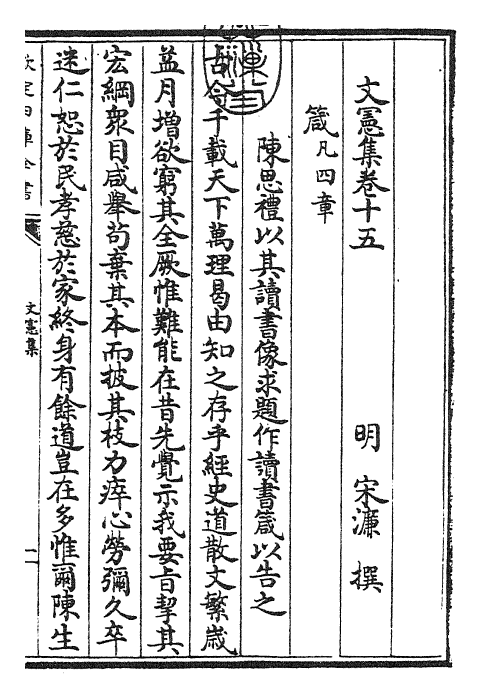 文憲集卷十五
明 宋濂 撰
箴凡四章
陳思禮以其讀書像求題作讀書箴以告之
古今千載天下萬理曷由知之存乎經史道散文繁歲
益月增欲窮其全厥惟難能在昔先覺示我要旨挈其
宏綱衆目咸舉茍棄其本而披其枝力瘁心勞彌久卒
迷仁恕於民孝慈於家終身有餘道豈在多惟爾陳生
欽定四庫全書
文憲集